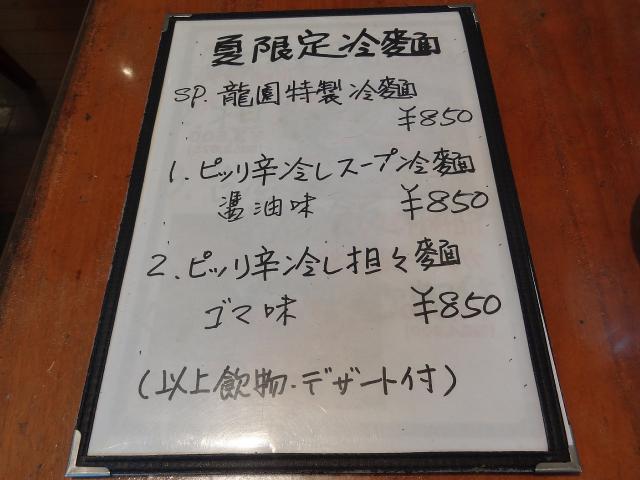 夏限定冷麵
SP. 龍園特製冷麵
¥850
1. ピッリ辛冷しスープ冷麵
醬油味 ¥850
2. ピッリ辛冷し担々麵
ゴマ味 ¥850
(以上飲物・デザート付)